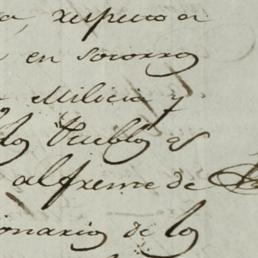 respecto a
en socorro
Milicia y
los Pueblos
al frente de
onario de los